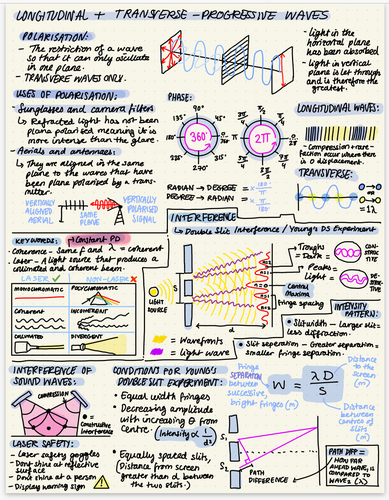 LONGITUDINAL + TRANSVERSE - PROGRESSIVE WAVES
POLARISATION:
- The restriction of a wave
so that it can only oscillate
in one plane.
- TRANSVERE WAVES ONLY.
- Light in the
horizontal plane
has been absorbed
- Light in vertical
plane is let through
and is therefore the
greatest.
USES OF POLARISATION:
- Sunglasses and camera filters
↳ Refracted light has not been
plane polarised meaning it is
more intense than the glare.
- Aerials and antennaes:
↳ They are aligned in the same
plane to the waves that have
been plane polarised by a trans-
mitter.
VERTICALLY
ALIGNED
AERIAL
SAME
PLANE
VERTICALLY
POLARISED
SIGNAL
PHASE:
90°
135° 45°
180° 360° 0°
225° 315°
270°
2π
RADIAN → DEGREE
DEGREE → RADIAN
× 180° / π
× π / 180°
LONGITUDINAL WAVES:
- Compression + rare-
faction occur where there
is 0 displacement.
TRANSVERSE:
OR
= 1λ
INTERFERENCE
↳ Double Slit Interference / Young's DS Experiment
KEY WORDS:
→ Constant PD
Coherence - Same f and λ = coherent
Laser - A light source that produces a
collimated and coherent beam.
LASER ✓ NON-LASER ✗
MONOCHROMATIC POLYCHROMATIC
COHERENT INCOHERENT
COLLIMATED DIVERGENT
LIGHT
SOURCE
S
d
Central
maxima
fringe spacing
= Wavefronts
= light wave
Troughs
= Dark =
Peaks =
Light =
CON-
STRUC-
TIVE
DE-
STRUC-
TIVE
INTENSITY
PATTERN:
• Slit width - Larger slit =
less diffraction.
• Slit seperation - Greater seperation =
smaller fringe separation.
INTERFERENCE OF
SOUND WAVES:
COMPRESSION
= Constructive
interference
LASER SAFETY:
- Laser safety goggles
- Dont shine at reflective
surface
- Dont shine at people
- Display warning sign
CONDITIONS FOR YOUNG'S
DOUBLE SLIT EXPERIMENT:
• Equal width fringes
• Decreasing amplitude
with increasing θ from
Centre. (Intensity ∝ 1/d²)
• Equally spaced slits,
(Distance from screen
greater than d between
the two slits.)
Fringe
SEPARATION
between
successive,
bright fringes
(m)
W = λD / S
Distance
to the
screen
(m)
Distance
between
centre of
slits (m)
S₁
S₂
PATH
DIFFERENCE
PATH DIFF =
HOW FAR
AHEAD WAVE IS
COMPARED TO
WAVES (λ)